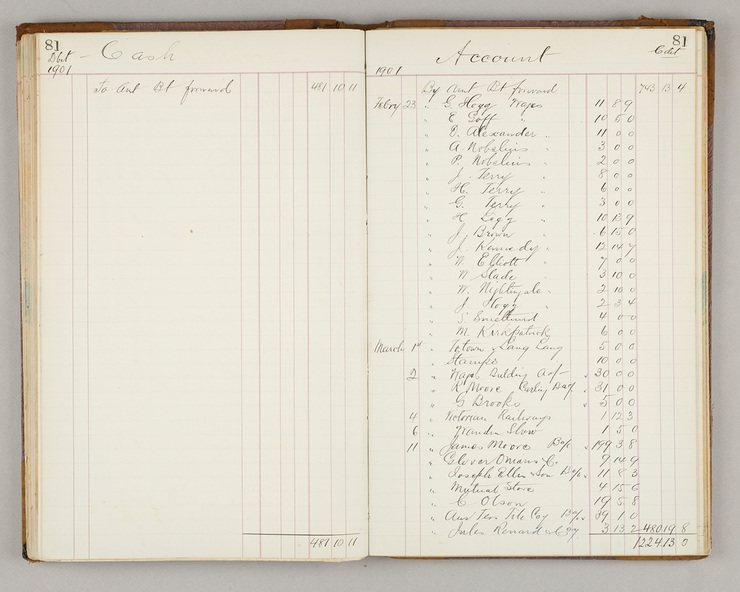 81
Dbt Cash
1901
To Amt Bt forward 481 10 11
481 10 11
81
Account Cdit
1901
By Amt Bt forward 743 13 4
Febry 23 " G. Hogg Wages 11 8 9
" E Goff " 10 5 0
" D. Alexander " 11 0 0
" A. Nobelius " 3 0 0
" P. Nobelius " 2 0 0
" J. Terry " 8 0 0
" H. Terry " 6 0 0
" G. Terry " 3 0 0
" H 10 13 9
" J. Brown 6 15 0
" J. Kennedy " 12 14 7
" N. Elliott " 7 0 0
" W Slade " 3 10 0
" W. Nightingale " 2 10 0
" J. Hogg " 2 3 4
" S. 4 0 0
" M. Kirkpatrick 6 0 0
March 1st " Lang Lang 5 0 0
" Stamps 10 0 0
2 " Wages Building A/c 30 0 0
" R. Moore 31 0 0
" G Brooks 5 0 0
4 " Victorian Railways 1 12 3
6 " Wandin Show 1 5 0
11 " James Moore 199 3 8
" Glover Onians & Co. 9 14 9
" Joseph Ellis & Son 11 8 3
" Mutual Store 4 15 6
" C Olson 19 5 8
" Aus Tile Coy 39 1 0
" Jules Renard & Coy 3 13 2 480 19 8
1224 13 0